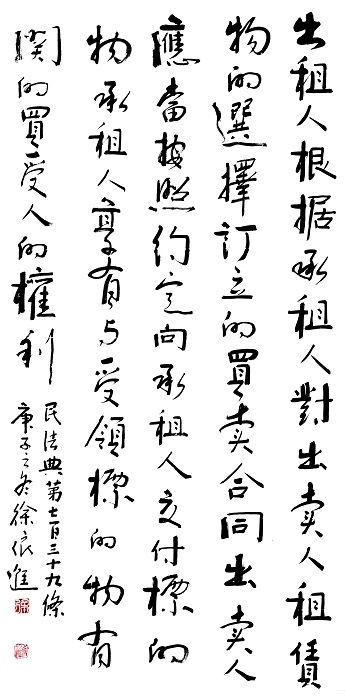 出租人根据承租人對出卖人租賃
物的選擇訂立的買卖合同出卖人
應當按照約定向承租人交付標的
物承租人享有与受領標的物有
関的買受人的權利
民法典第七百三十九條
庚子之冬徐